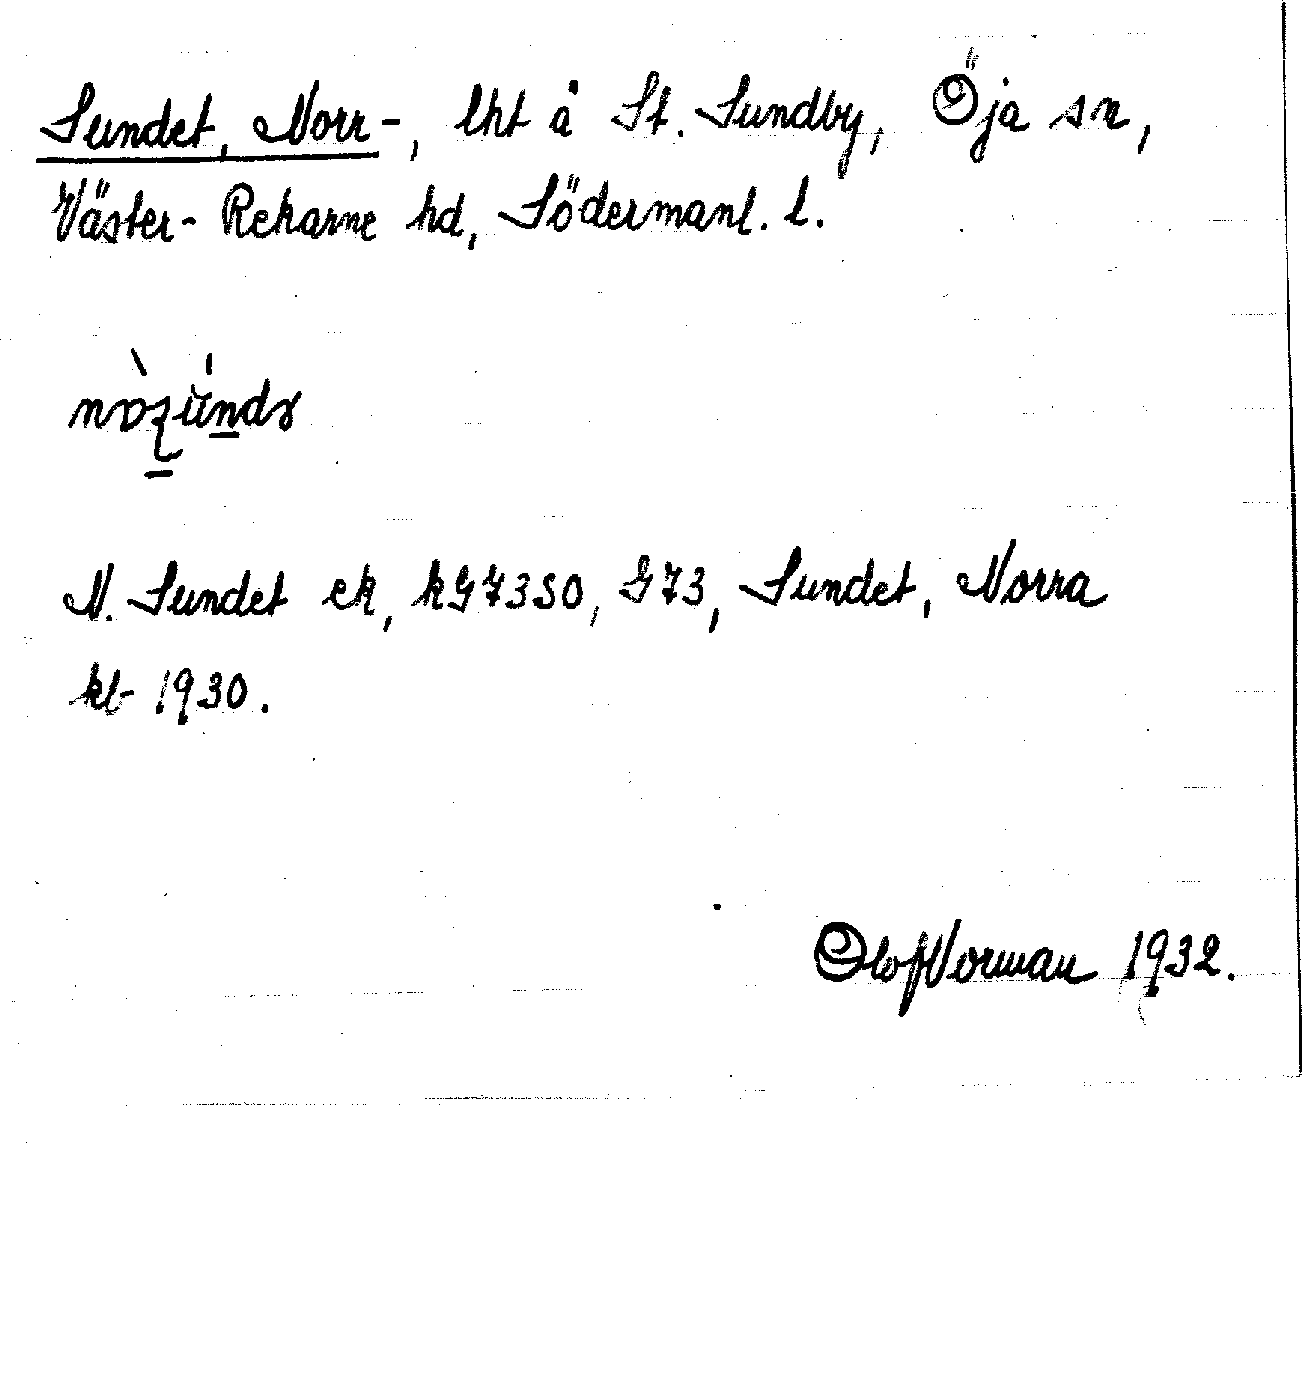 Sundet, Norr-, lht å St. Sundby, Öja sn,
Väster-Rekarne hd, Södermanl. l.
N. Sundet ek, kG73SO, G73, Sundet, Norra
kb 1930.
Olof Norman 1932.